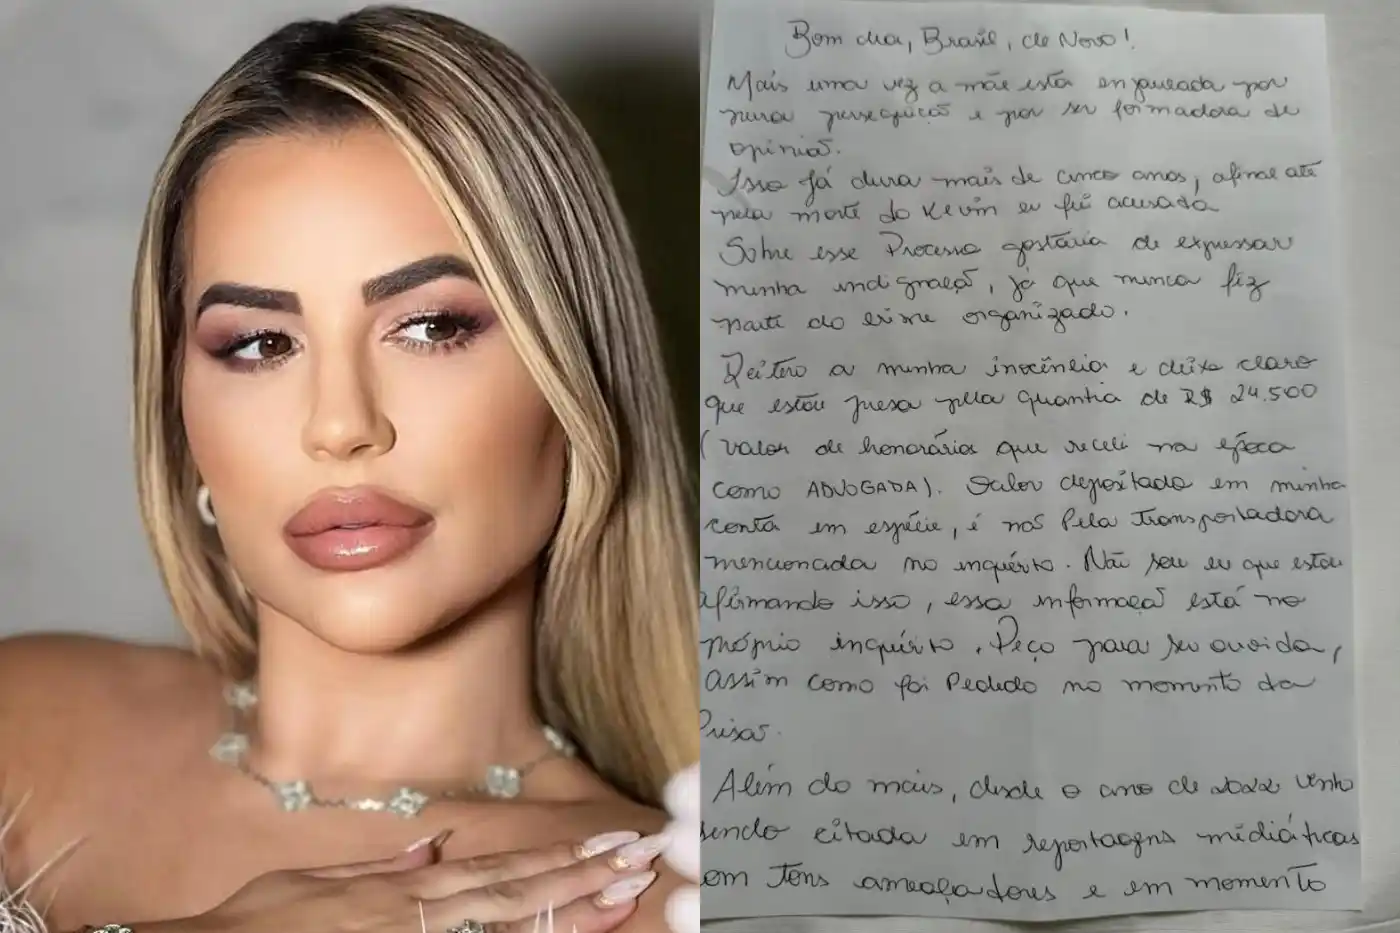 Bom dia, Brasil, de Novo!
Mais uma vez a mãe está enjaulada por
pura perseguição e por ser formadora de
opinião.
Isso já dura mais de cinco anos, afinal até
pela morte do Kevin eu fui acusada
Sobre esse Processo gostaria de expressar
minha indignação, já que nunca fiz
parte do crime organizado.
Reitero a minha inocência e deixo claro
que estou presa pela quantia de R$ 24.500
(valor de honorária que recebi na época
como ADVOGADA). Valor depositado em minha
conta em espécie, é não Pela Transportadora
mencionada no inquérito. Não sou eu que estou
afirmando isso, essa informação está no
próprio inquérito. Peço para ser ouvida,
assim como foi Pedido no momento da
Prisão.
Além do mais, desde o ano de 2022 venho
sendo citada em reportagens midiáticas
com Tons ameaçadores e em momento